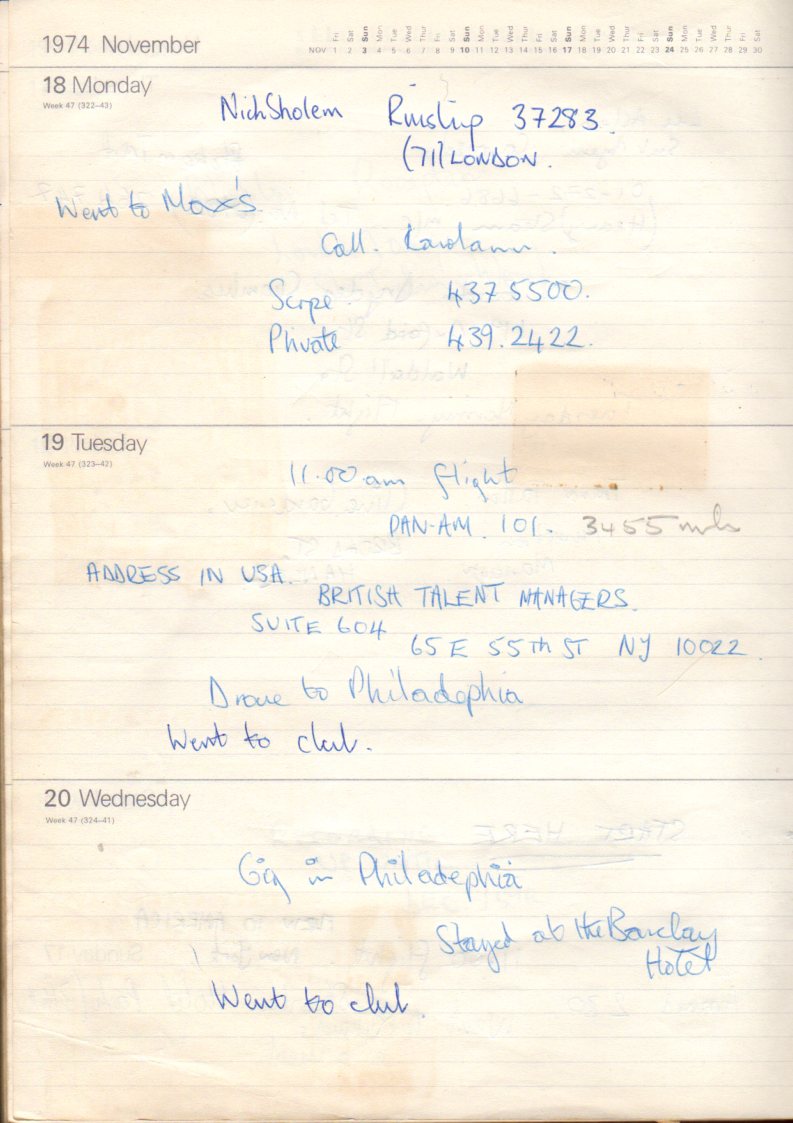 1974 November
Fri Sat Sun Mon Tue Wed Thur Fri Sat Sun Mon Tue Wed Thur Fri Sat Sun Mon Tue Wed Thur Fri Sat Sun Mon Tue Wed Thur Fri Sat
NOV 1 2 3 4 5 6 7 8 9 10 11 12 13 14 15 16 17 18 19 20 21 22 23 24 25 26 27 28 29 30
18 Monday
Week 47 (322–43)
Nick Sholem Ruislip 37283.
(71) LONDON.
Went to Max's.
Call. Karolann.
Scope 437 5500.
Private 439.2422.
19 Tuesday
Week 47 (323–42)
11.00 am flight
PAN-AM. 101. 3455 mls
ADDRESS IN USA.
BRITISH TALENT MANAGERS.
SUITE 604
65 E 55TH ST NY 10022.
Drove to Philadephia
Went to club.
20 Wednesday
Week 47 (324–41)
Gig in Philadephia
Stayed at the Barclay
Hotel
Went to club.